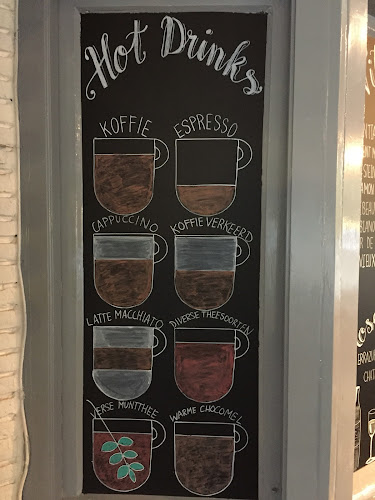 Hot Drinks
KOFFIE
ESPRESSO
CAPPUCCINO
KOFFIE VERKEERD
LATTE MACCHIATO
DIVERSE THEESOORTEN
VERSE MUNTTHEE
WARME CHOCOMEL